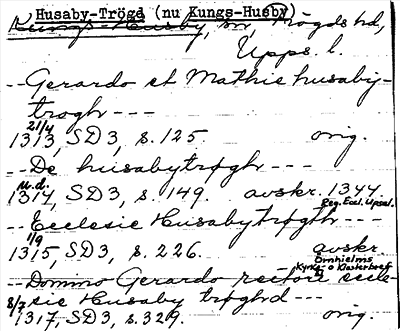 Husaby-Tröga (nu Kungs-Husby)
Kungs-Husby, sn, Trögds hd,
Upps. l.
-- Gerardo et Mathie husaby-
trøgh ---
21/4
1313, SD3, s. 125. orig.
-- De husabytrøgh ---
u.d.
1314, SD3, s. 149. avskr. 1344.
Reg. Eccl. Upsal.
-- Ecclesie Husabytrøgth ---
1/9
1315, SD3, s. 226. avskr.
Örnhielms
Kyrko- o Klosterbref
-- Domino Gerardo rectore eccle-
sie Husaby trøghrd ---
8/7
1317, SD3, s. 329. orig.